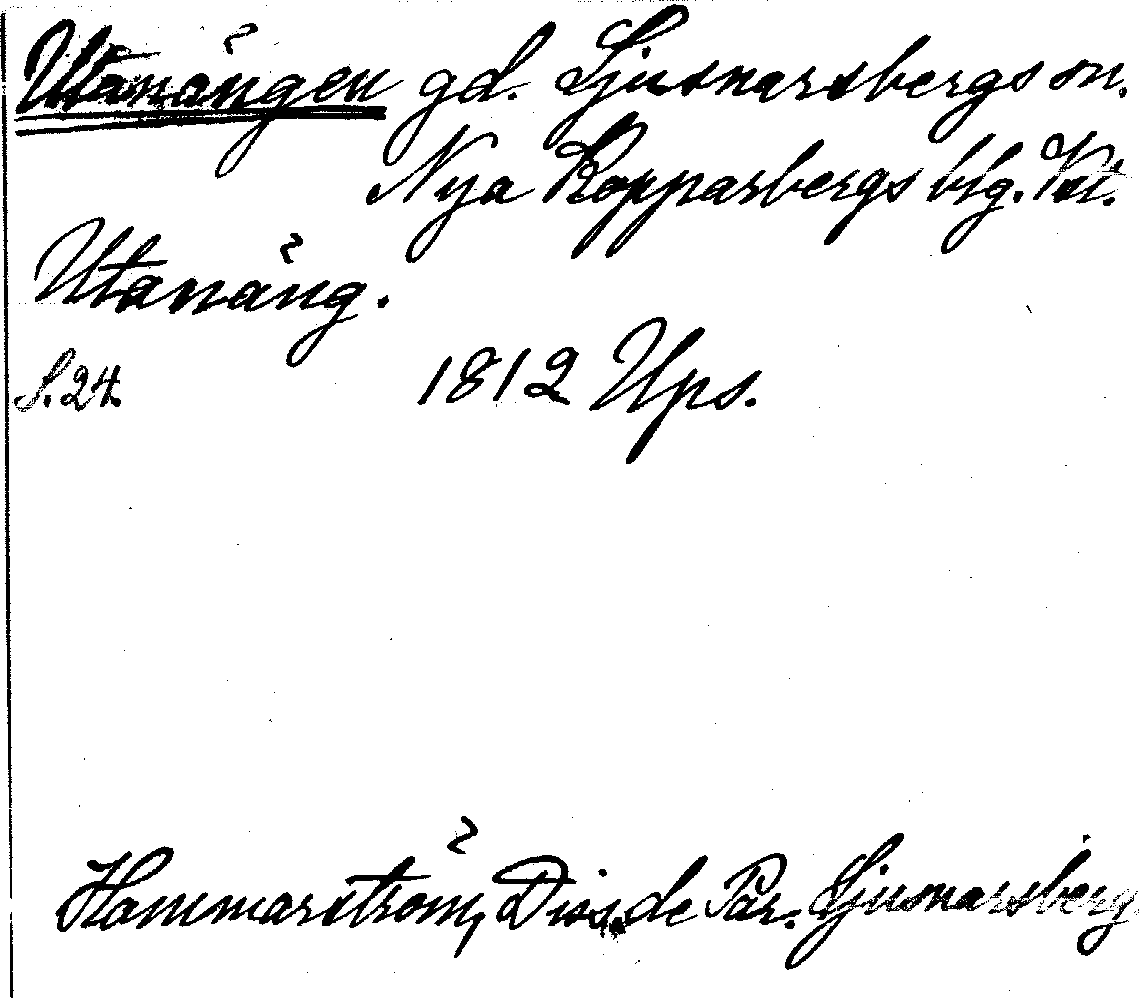 Utanängen gd. Ljusnarsbergs sn.
Nya Kopparbergs blg. Vri.
Utanäng.
S. 24. 1812 Ups.
Hammarström, Diss. de Par. Ljusnarsberg.